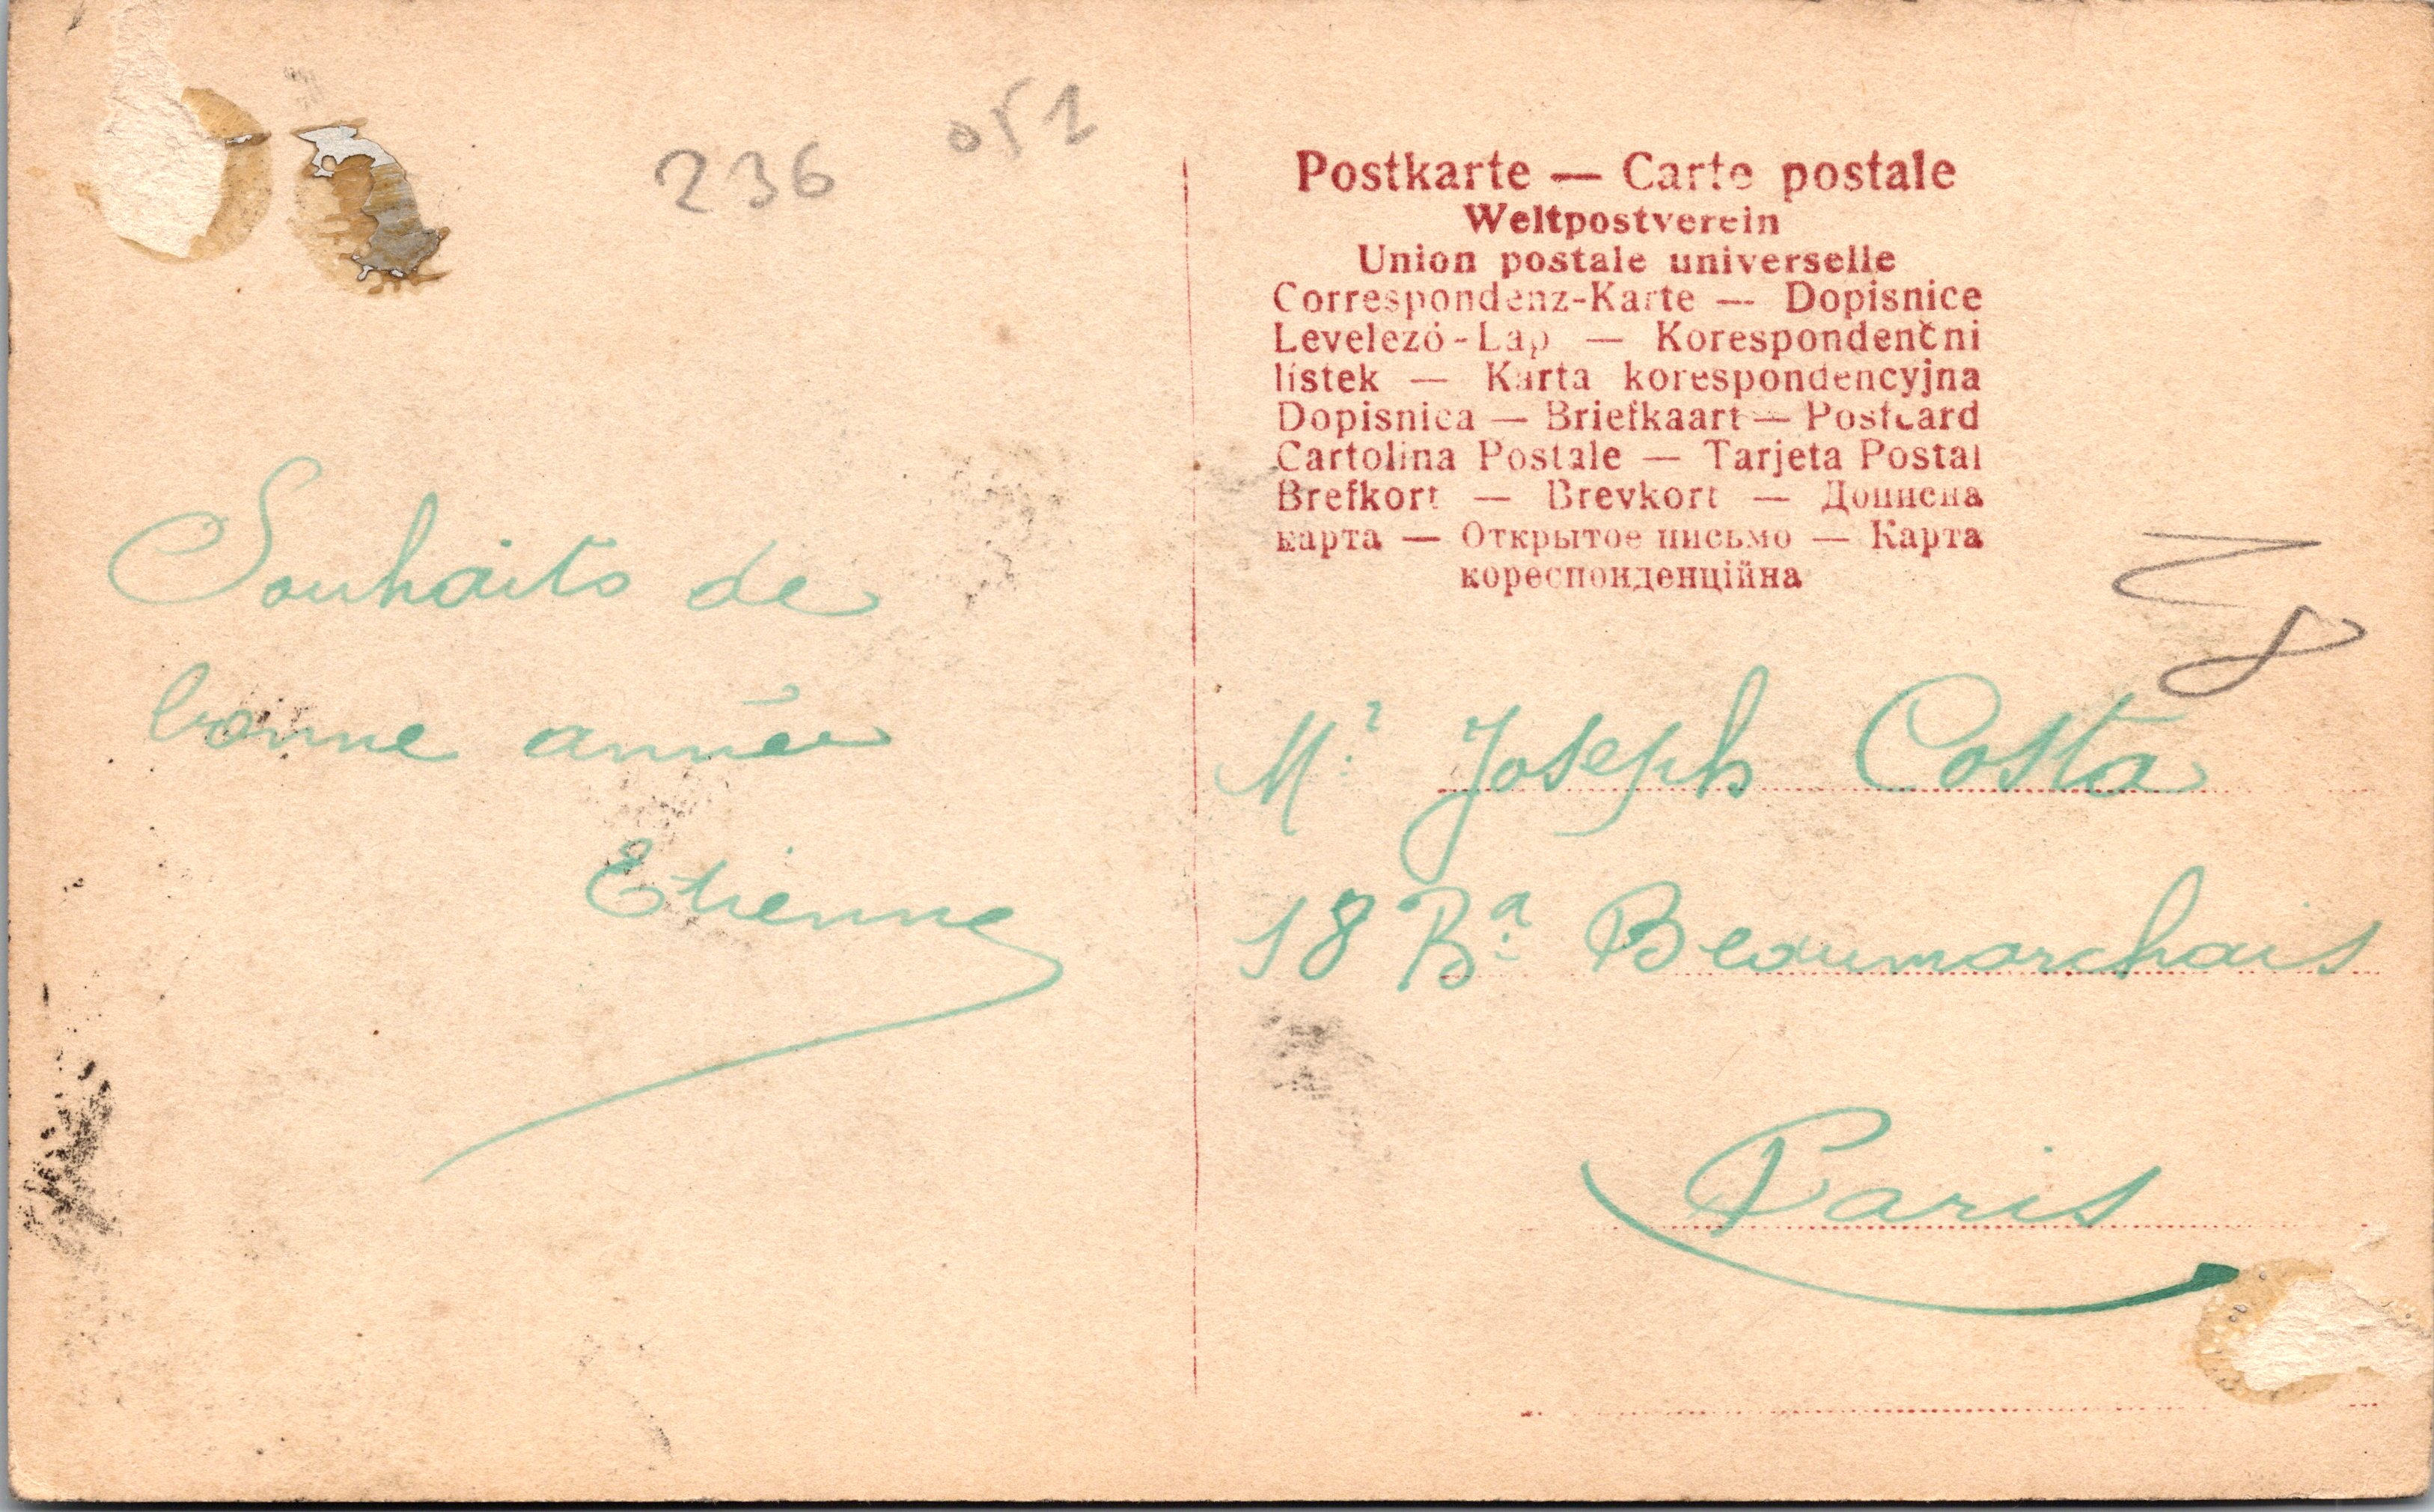 236
Souhaits de
bonne année
Etienne
Postkarte — Carte postale
Weltpostverein
Union postale universelle
Correspondenz-Karte — Dopisnice
Levelező-Lap — Korespondenčni
listek — Karta korespondencyjna
Dopisnica — Briefkaart — Postcard
Cartolina Postale — Tarjeta Postal
Brefkort — Brevkort — Дописна
карта — Открытое письмо — Карта
кореспонденційна
Mr Joseph Costa
18 Bd Beaumarchais
Paris